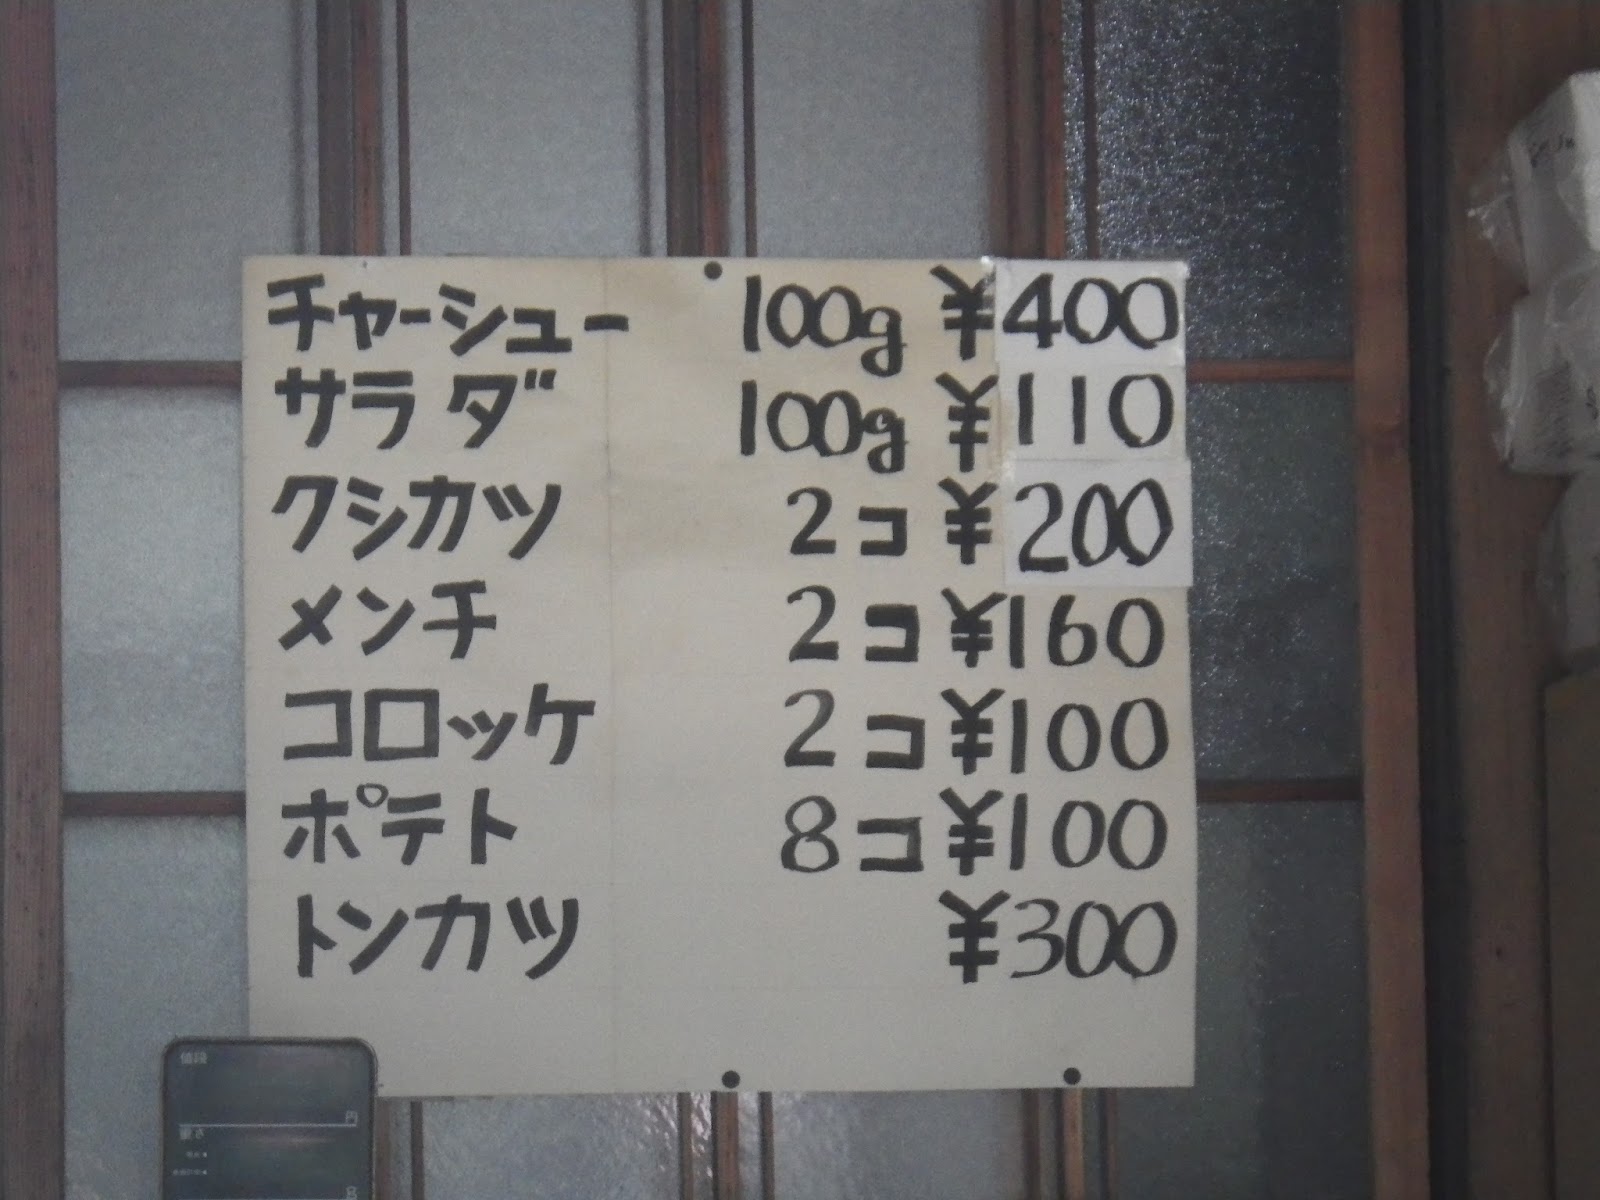 チャーシュー 100g ¥400
サラダ 100g ¥110
クシカツ 2コ ¥200
メンチ 2コ ¥160
コロッケ 2コ ¥100
ポテト 8コ ¥100
トンカツ ¥300
値段
円
重さ
g